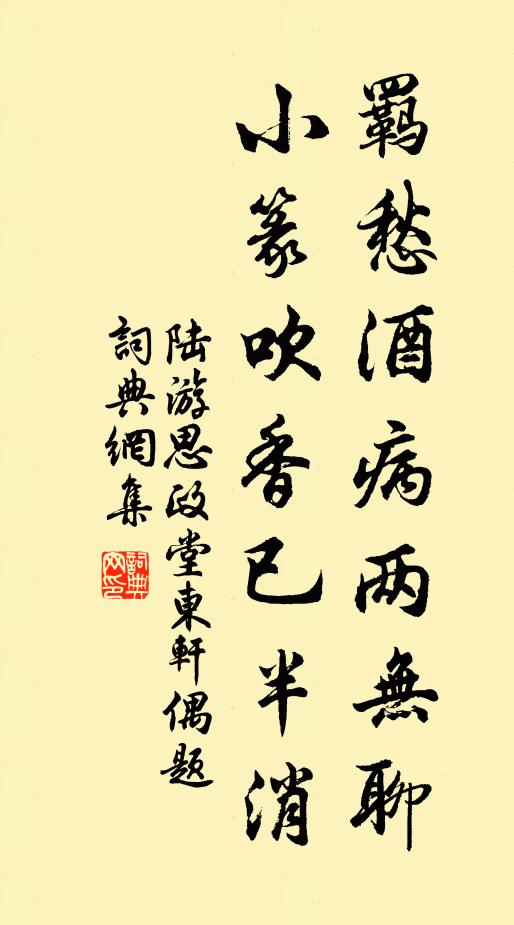 羈愁酒病两無聊
小篆吹香已半消
陆游思政堂東軒偶题
詞典網集
詞典网印